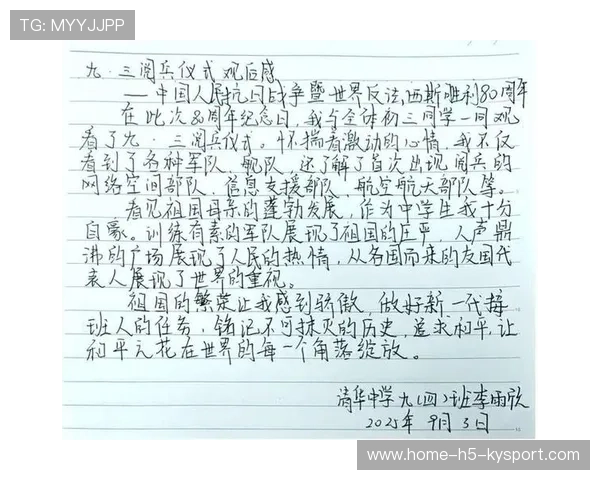 TG: MYYJJPP
九·三阅兵仪式观后感
——中国人民抗日战争暨世界反法西斯胜利80周年
在此次80周年纪念日,我与全体初三同学一同观
看了九·三阅兵仪式。怀揣着激动的心情,我不仅
看到了各种军队、舰队,还了解了首次出现阅兵的
网络空间部队、信息支援部队、航空航天部队等。
看见祖国母亲的蓬勃发展,作为中学生我十分
自豪。训练有素的军队展现了祖国的庄严,人声鼎
沸的广场展现了人民的热情,从各国而来的友国代
表人展现了世界的重视。
祖国的繁荣让我感到骄傲,做好新一代接
班人的任务,铭记不可抹灭的历史,追求和平,让
和平之花在世界的每一个角落绽放。
清华中学九(四)班李雨欣
2025年9月3日
www.home-h5-kysport.com